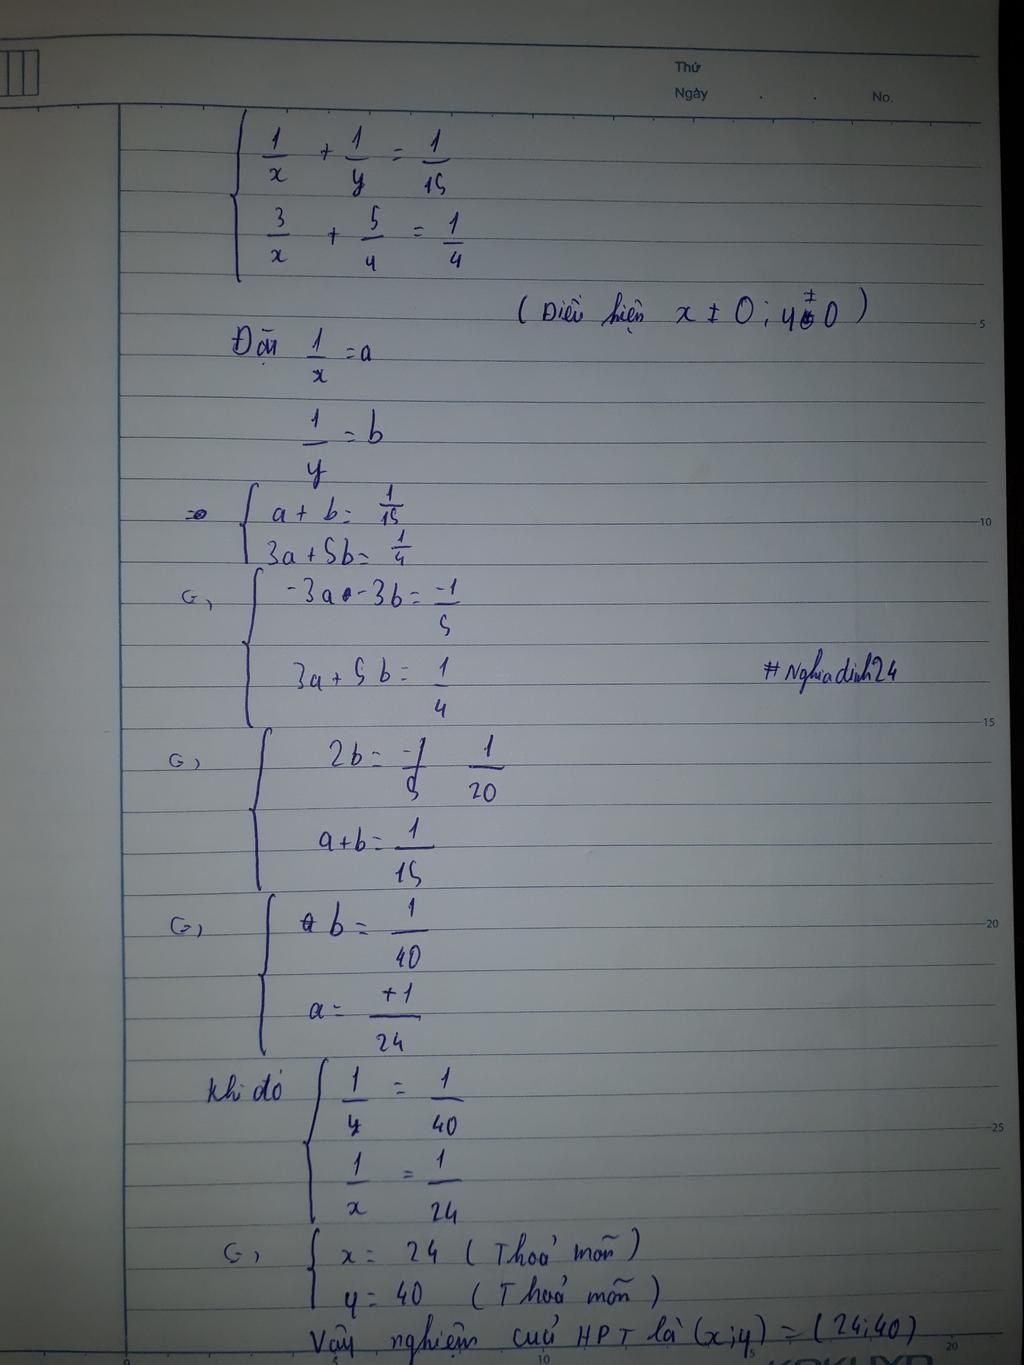 Thứ
Ngày . . No.
1/x + 1/y = 1/15
3/x + 5/y = 1/4
(Điều kiện x ≠ 0; y ≠ 0)
5
Đặt 1/x = a
1/y = b
=> a + b = 1/15
10
3a + 5b = 1/4
<=> -3a - 3b = -1/5
3a + 5b = 1/4
#Nghiadinh24
15
<=> 2b = 1/20
a + b = 1/15
<=> b = 1/40
20
a = +1/24
Khi đó 1/y = 1/40
25
1/x = 1/24
<=> x = 24 (Thoả mãn)
y = 40 (Thoả mãn)
Vậy nghiệm của HPT là (x;y) = (24;40)
0 5 10 15 20
KOKUYO